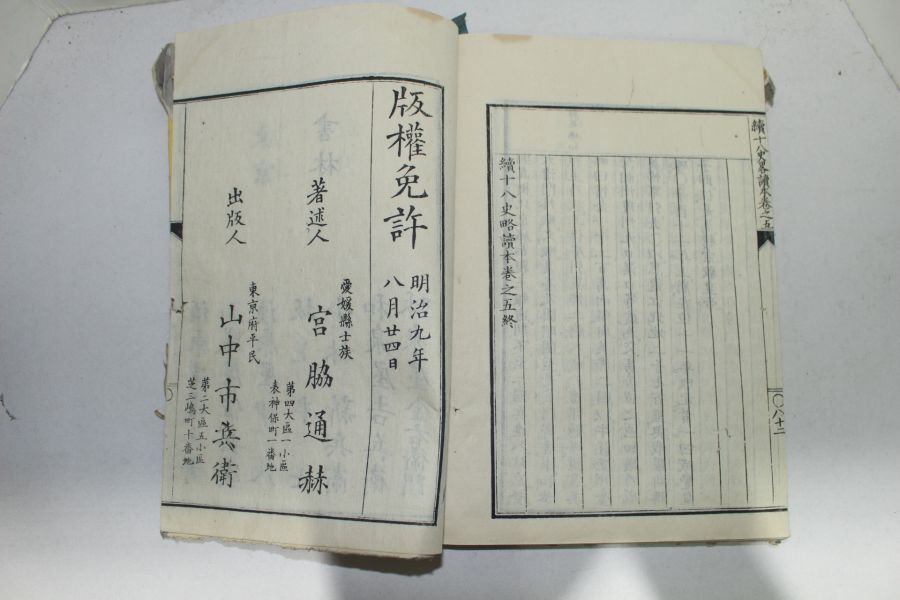 續十八史略讀本卷之五
〇八十二
續十八史略讀本卷之五終
版權免許
明治九年
八月廿四日
著述人
愛媛縣士族
宮脇通赫
第四大區一小區
表神保町一番地
出版人
東京府平民
山中市兵衛
第二大區五小區
芝三嶋町十番地